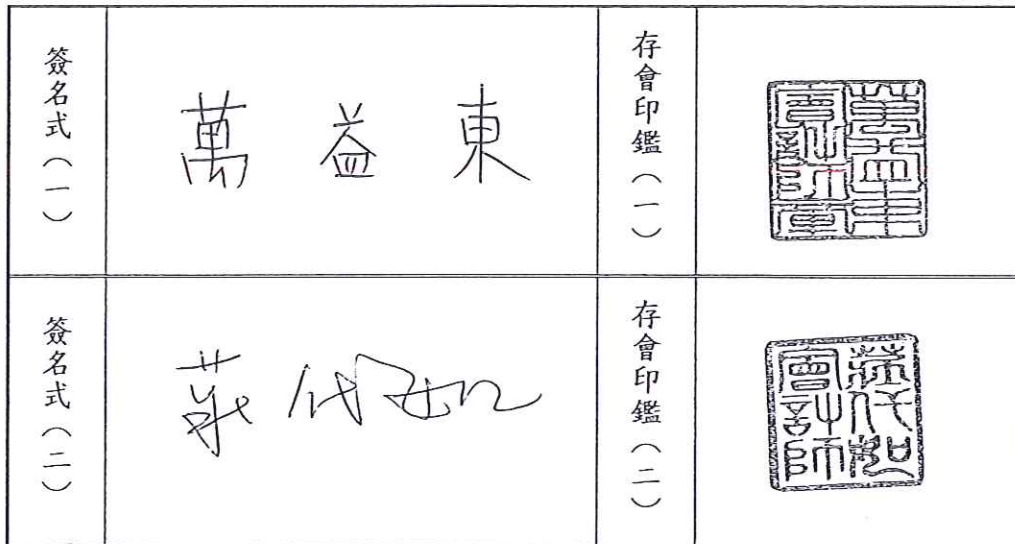 簽名式(一)
萬益東
存會印鑑(一)
萬益東
會計師章
簽名式(二)
存會印鑑(二)
會計師